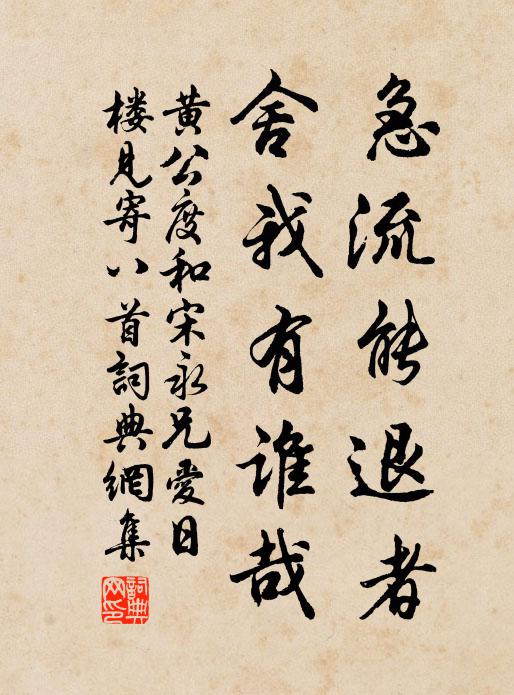 急流能退者
舍我有谁哉
黄公度和宋永兄愛日
楼見寄八首詞典網集
詞典网印